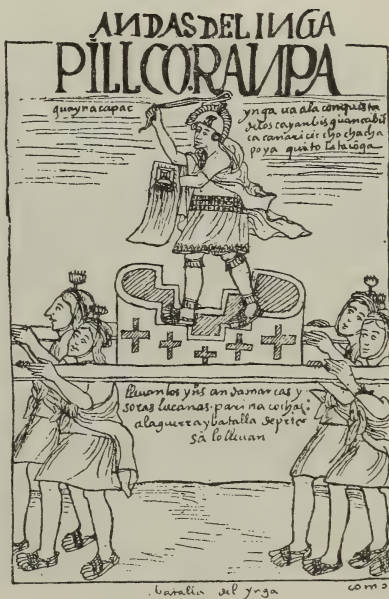 ANDAS DEL INGA
PILLCO:RANPA
guaynacapac
ynga ua ala conquista
delos cayanbis guancabil
ca cañari cicho chacha
poya quito latacõga
lleuan los yn̄s andamarcas y
soras lucanas parinacochas:
ala guerra y batalla de prie
sa lo lleuan
batalla del ynga
como